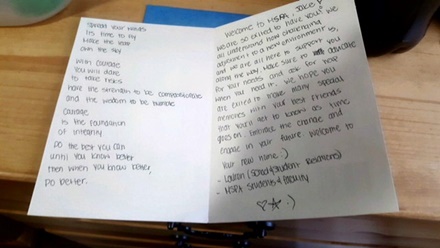 Spread your wings
It's time to fly
Make the leap
Own the sky
With courage
You will dare
to take risks
Have the strength to be compassionate
and the wisdom to be humble
Courage
is the foundation
of integrity
Do the best you can
until you know better
then when you know better,
do better.
Welcome to HSPA, Jake!
We are so excited to have you! We
all understand how challenging
adjustment to a new environment is,
and we are all here to support you
along the way. Make sure to advocate
for your needs and ask for help
when you need it. We hope you
are excited to make many special
memories with your best friends
that you'll get to know as time
goes on. Embrace the change and
engage in your future. Welcome to
your new home :)
- (School Student Relations)
- HSPA Students & Faculty
♡☆ :)